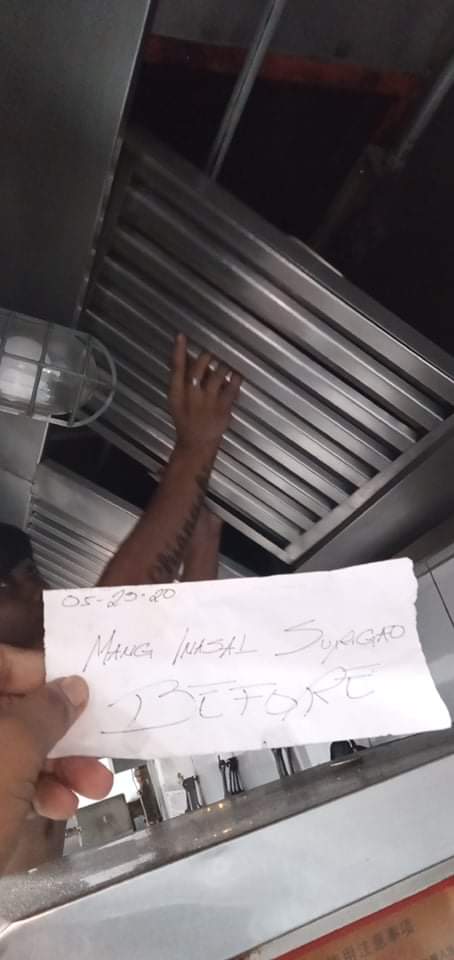 05-29-20
MANG INASAL SURIGAO
BEFORE
用注意事項